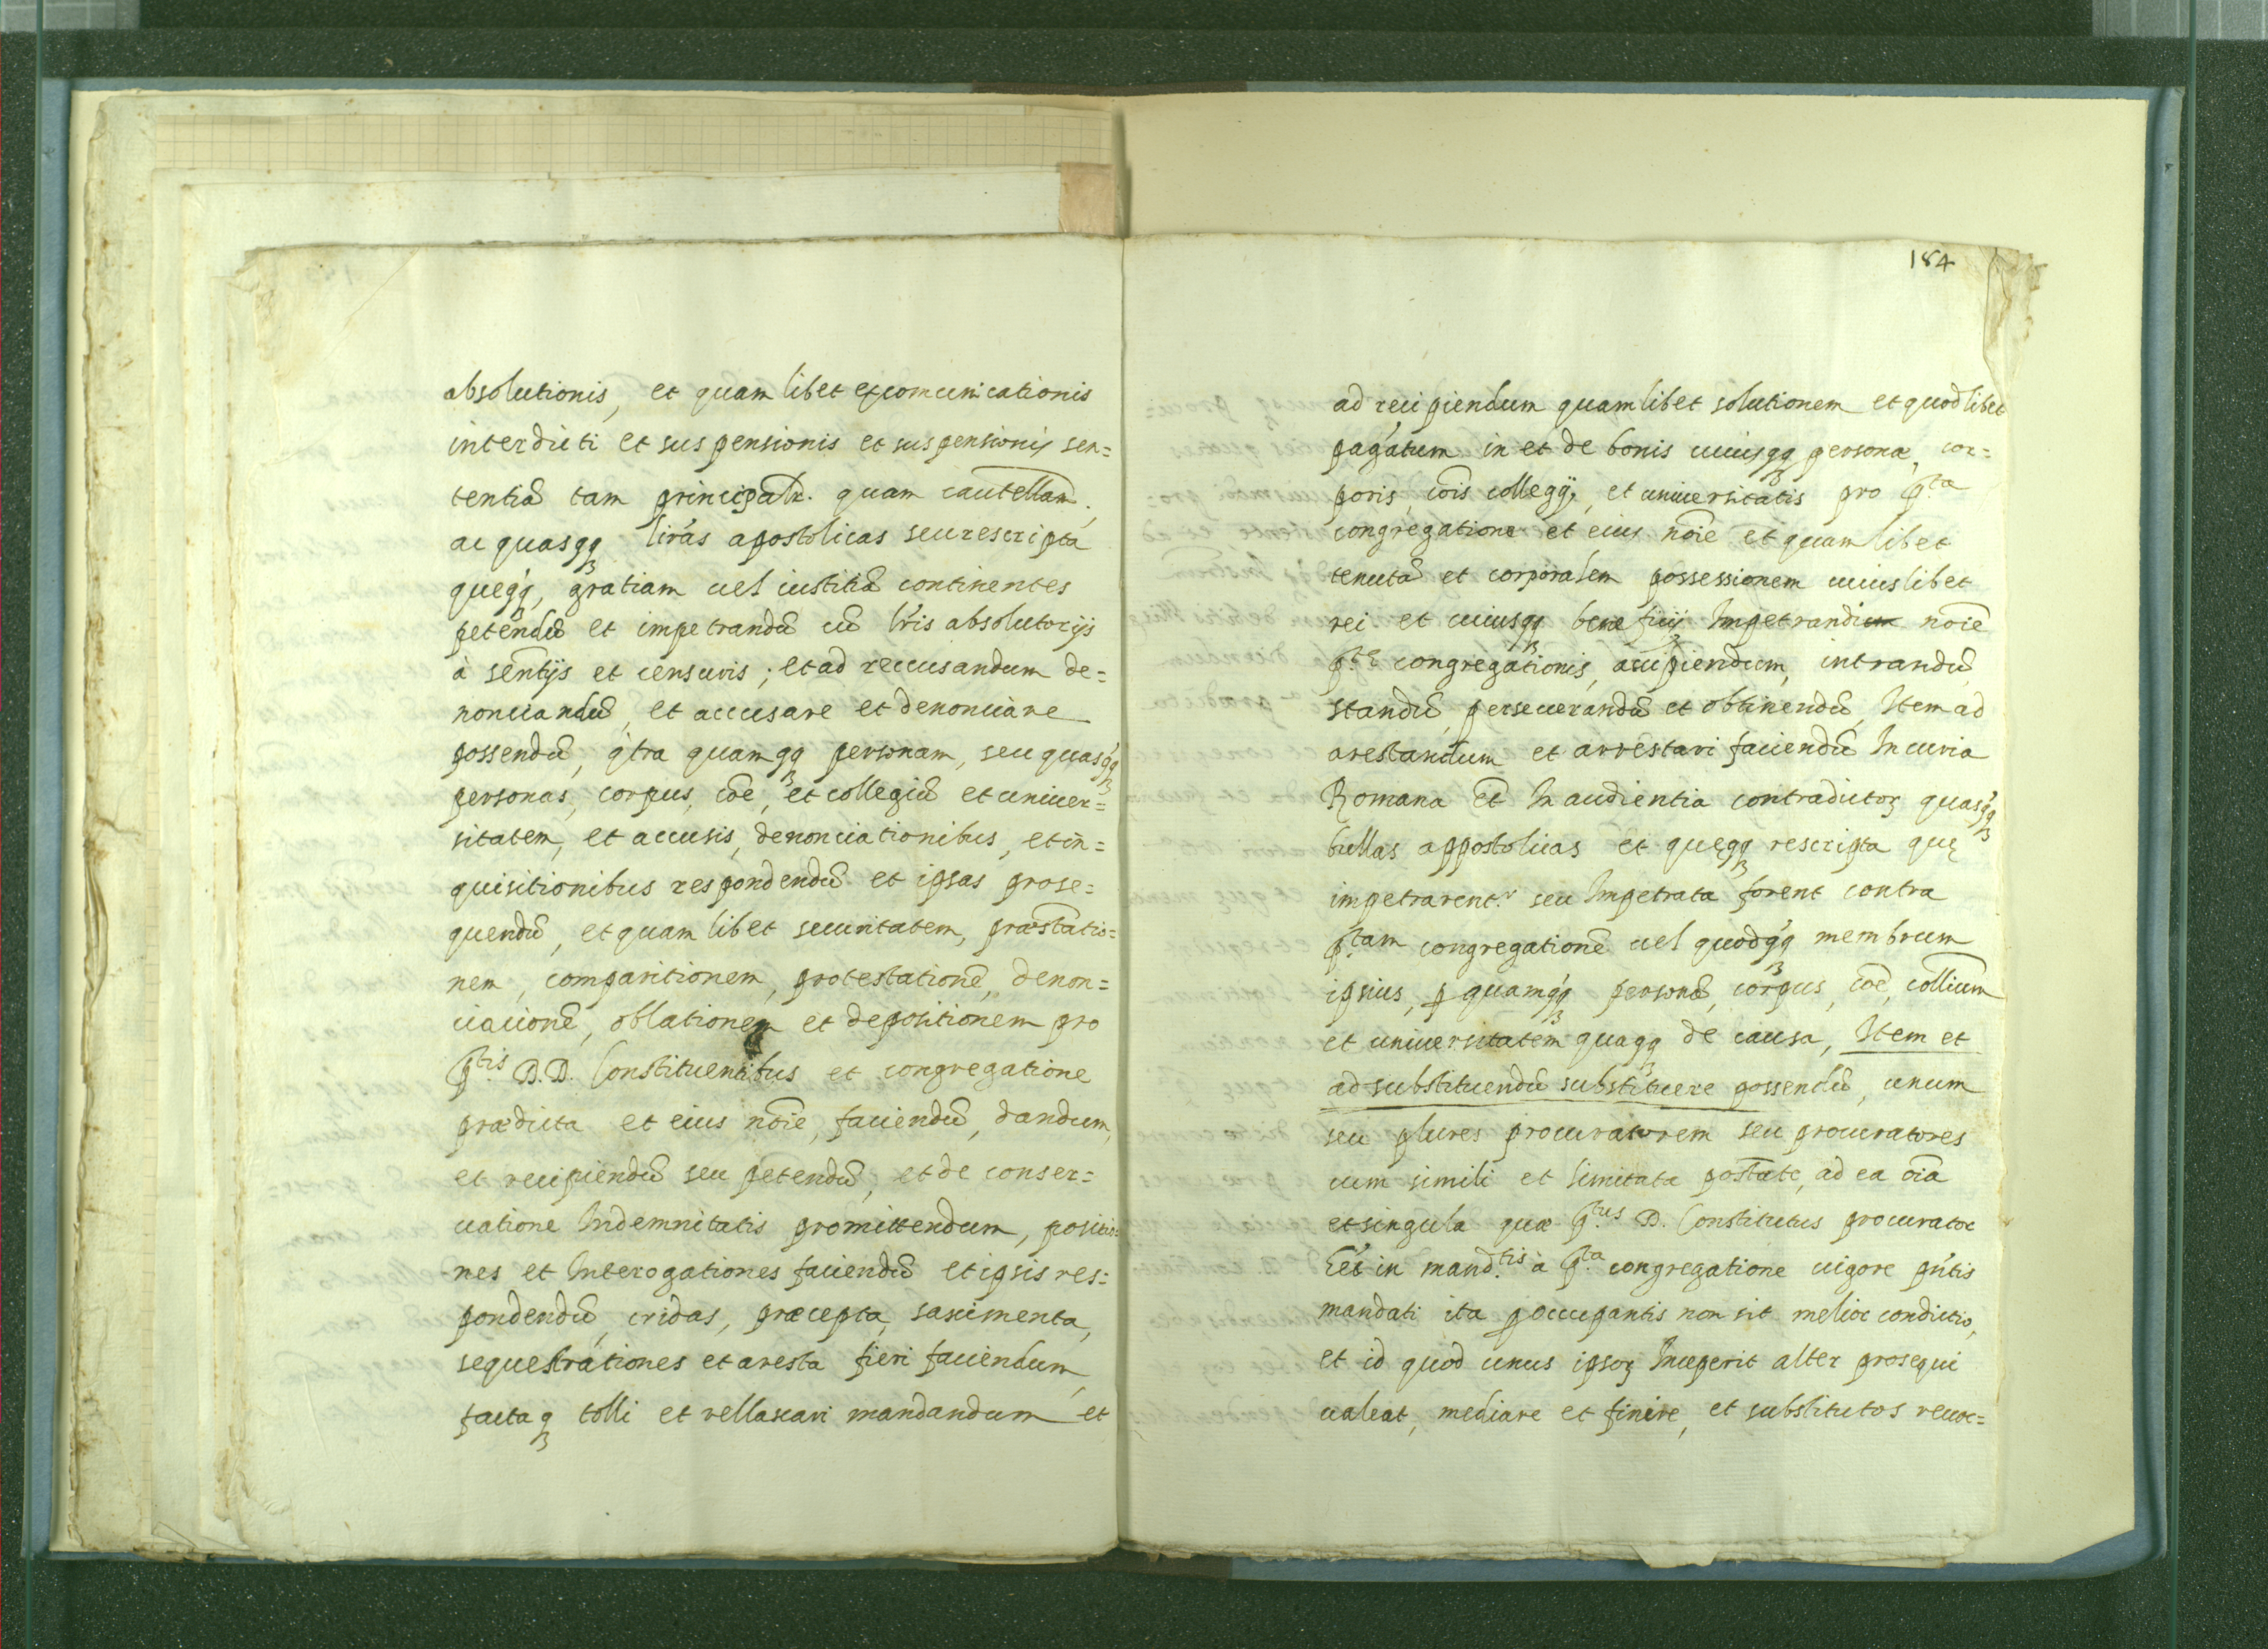 absolutionis, et quam libet excomunicationis
interdicti et suspensionis et suspensionis sen=
tentiā tam principalr̄. quam cautellam̄.,
ac quasqq lirās apostolicas seu rescripta
queqq, gratiam uel iustitiā continentes
petendū et impetrandū cū lr̄is absolutorijs
à senn̄tijs et censuris; et ad reccusandum de=
nonciandū, et accusare et denonciare
possendū, q̄tra quamqq personam, seu quasqq
personas, corpus, cōe, et collegiū et uniuer=
sitatem, et accusis, denonciationibus, et in=
quisitionibus respondendū et ipsas prose=
quendū, et quam libet securitatem, præstatio=
nem, comparitionem, protestationē, denon=
ciacionē, oblationem et depositionem pro
p.tis D.D. Constituentibus et congregatione
prædicta et eius nōie, faciendū, dandum,
et recipiendū seu petendū, et de conser=
uatione Indemnitatis promittendum, positio=
nes et Interogationes faciendū et ipsis res=
pondendū, cridas, præcepta, saximenta,
sequestrationes et aresta fieri faciendum,
factaq tolli et rellaxari mandandum et
184
ad recipiendum quamlibet solutionem et quodlibet
pagatum in et de bonis cuiusqq personæ, cor=
poris, cōis collegij, et uniuersitatis pro p.ta
congregatione et eius nōie et quam libet
tenutā et corporalem possessionem cuiuslibet
rei et cuiusqq beneficij Impetrandi nōie
p.tę congregationis, accipiendum, intrandū
standū, perseuerandū et obtinendū, Item ad
arestandum et arrestari faciendū In curia
Romana Et In audientia contradictoȝ quasqq
bullas appostolicas et quęqq rescripta quę
impetrarent.r seu Impetrata forent contra
p.tam congregationē uel quodqq membrum
ipsius, p quamqq personā, corpus, cōe, collium̄
et uniuersitatem quaqq de causa, Item et
ad substituendū substituere possendū, unum
seu plures procuratorem seu procuratores
cum simili et limitata postāte, ad ea oīa
et singula quæ p.tus D. Constitutus procurator
in mand.tis à p.ta congregatione uigore pn̄tis
mandati ita p occupantis non sit melior condictio,
et id quod unus ipsoȝ Inceperit alter prosequi
ualeat, mediare et finire, et substitutos reuoc=